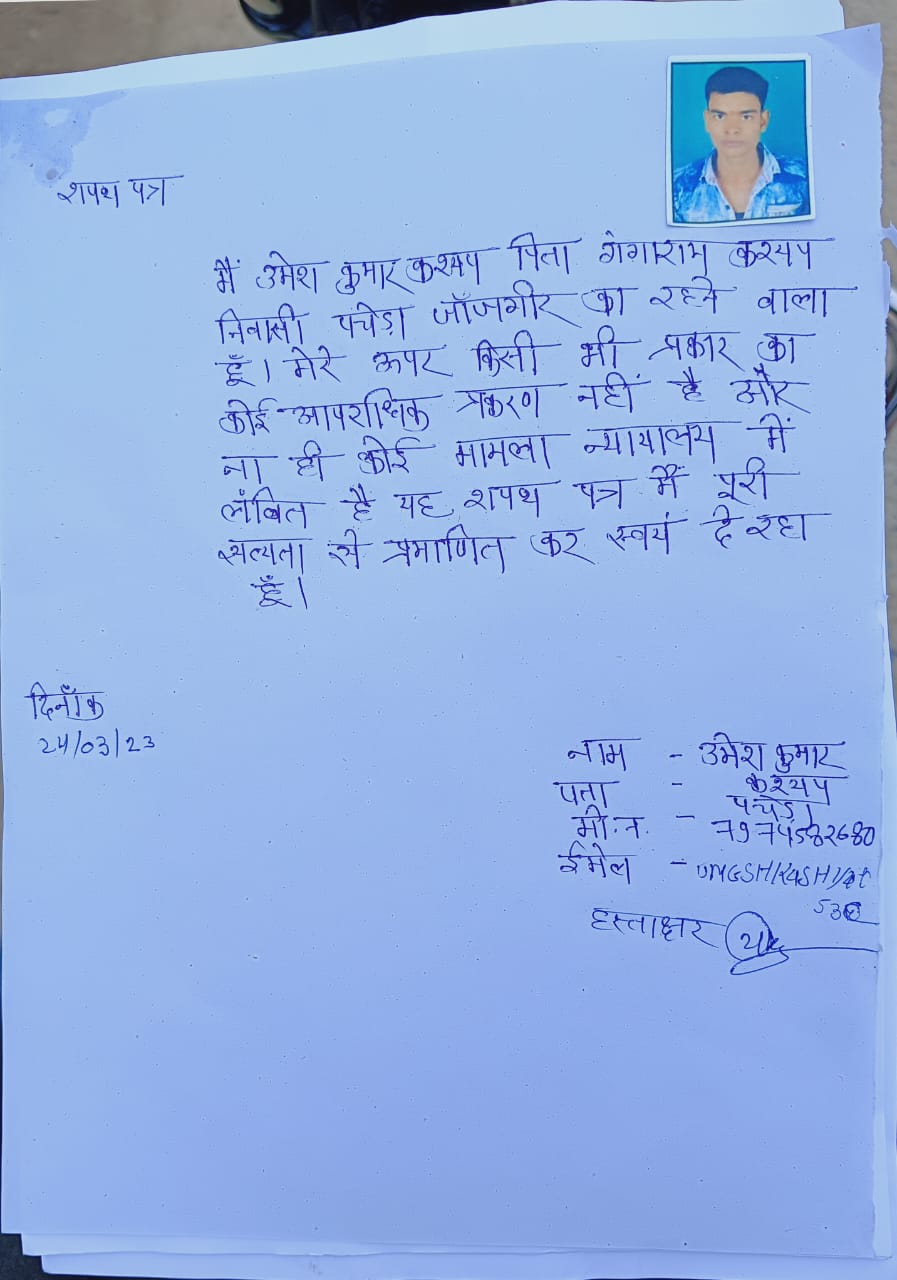 शपथ पत्र
मैं उमेश कुमार कश्यप पिता गंगाराम कश्यप
निवासी पचेड़ा जाँजगीर का रहने वाला
हूँ। मेरे ऊपर किसी भी प्रकार का
कोई आपराधिक प्रकरण नहीं है और
ना ही कोई मामला न्यायालय में
लंबित है यह शपथ पत्र मैं पूरी
सत्यता से प्रमाणित कर स्वयं दे रहा
हूँ।
दिनाँक
24/03/23
नाम - उमेश कुमार
कश्यप
पता - पचेड़ा
मो.न. -
ईमेल -
हस्ताक्षर